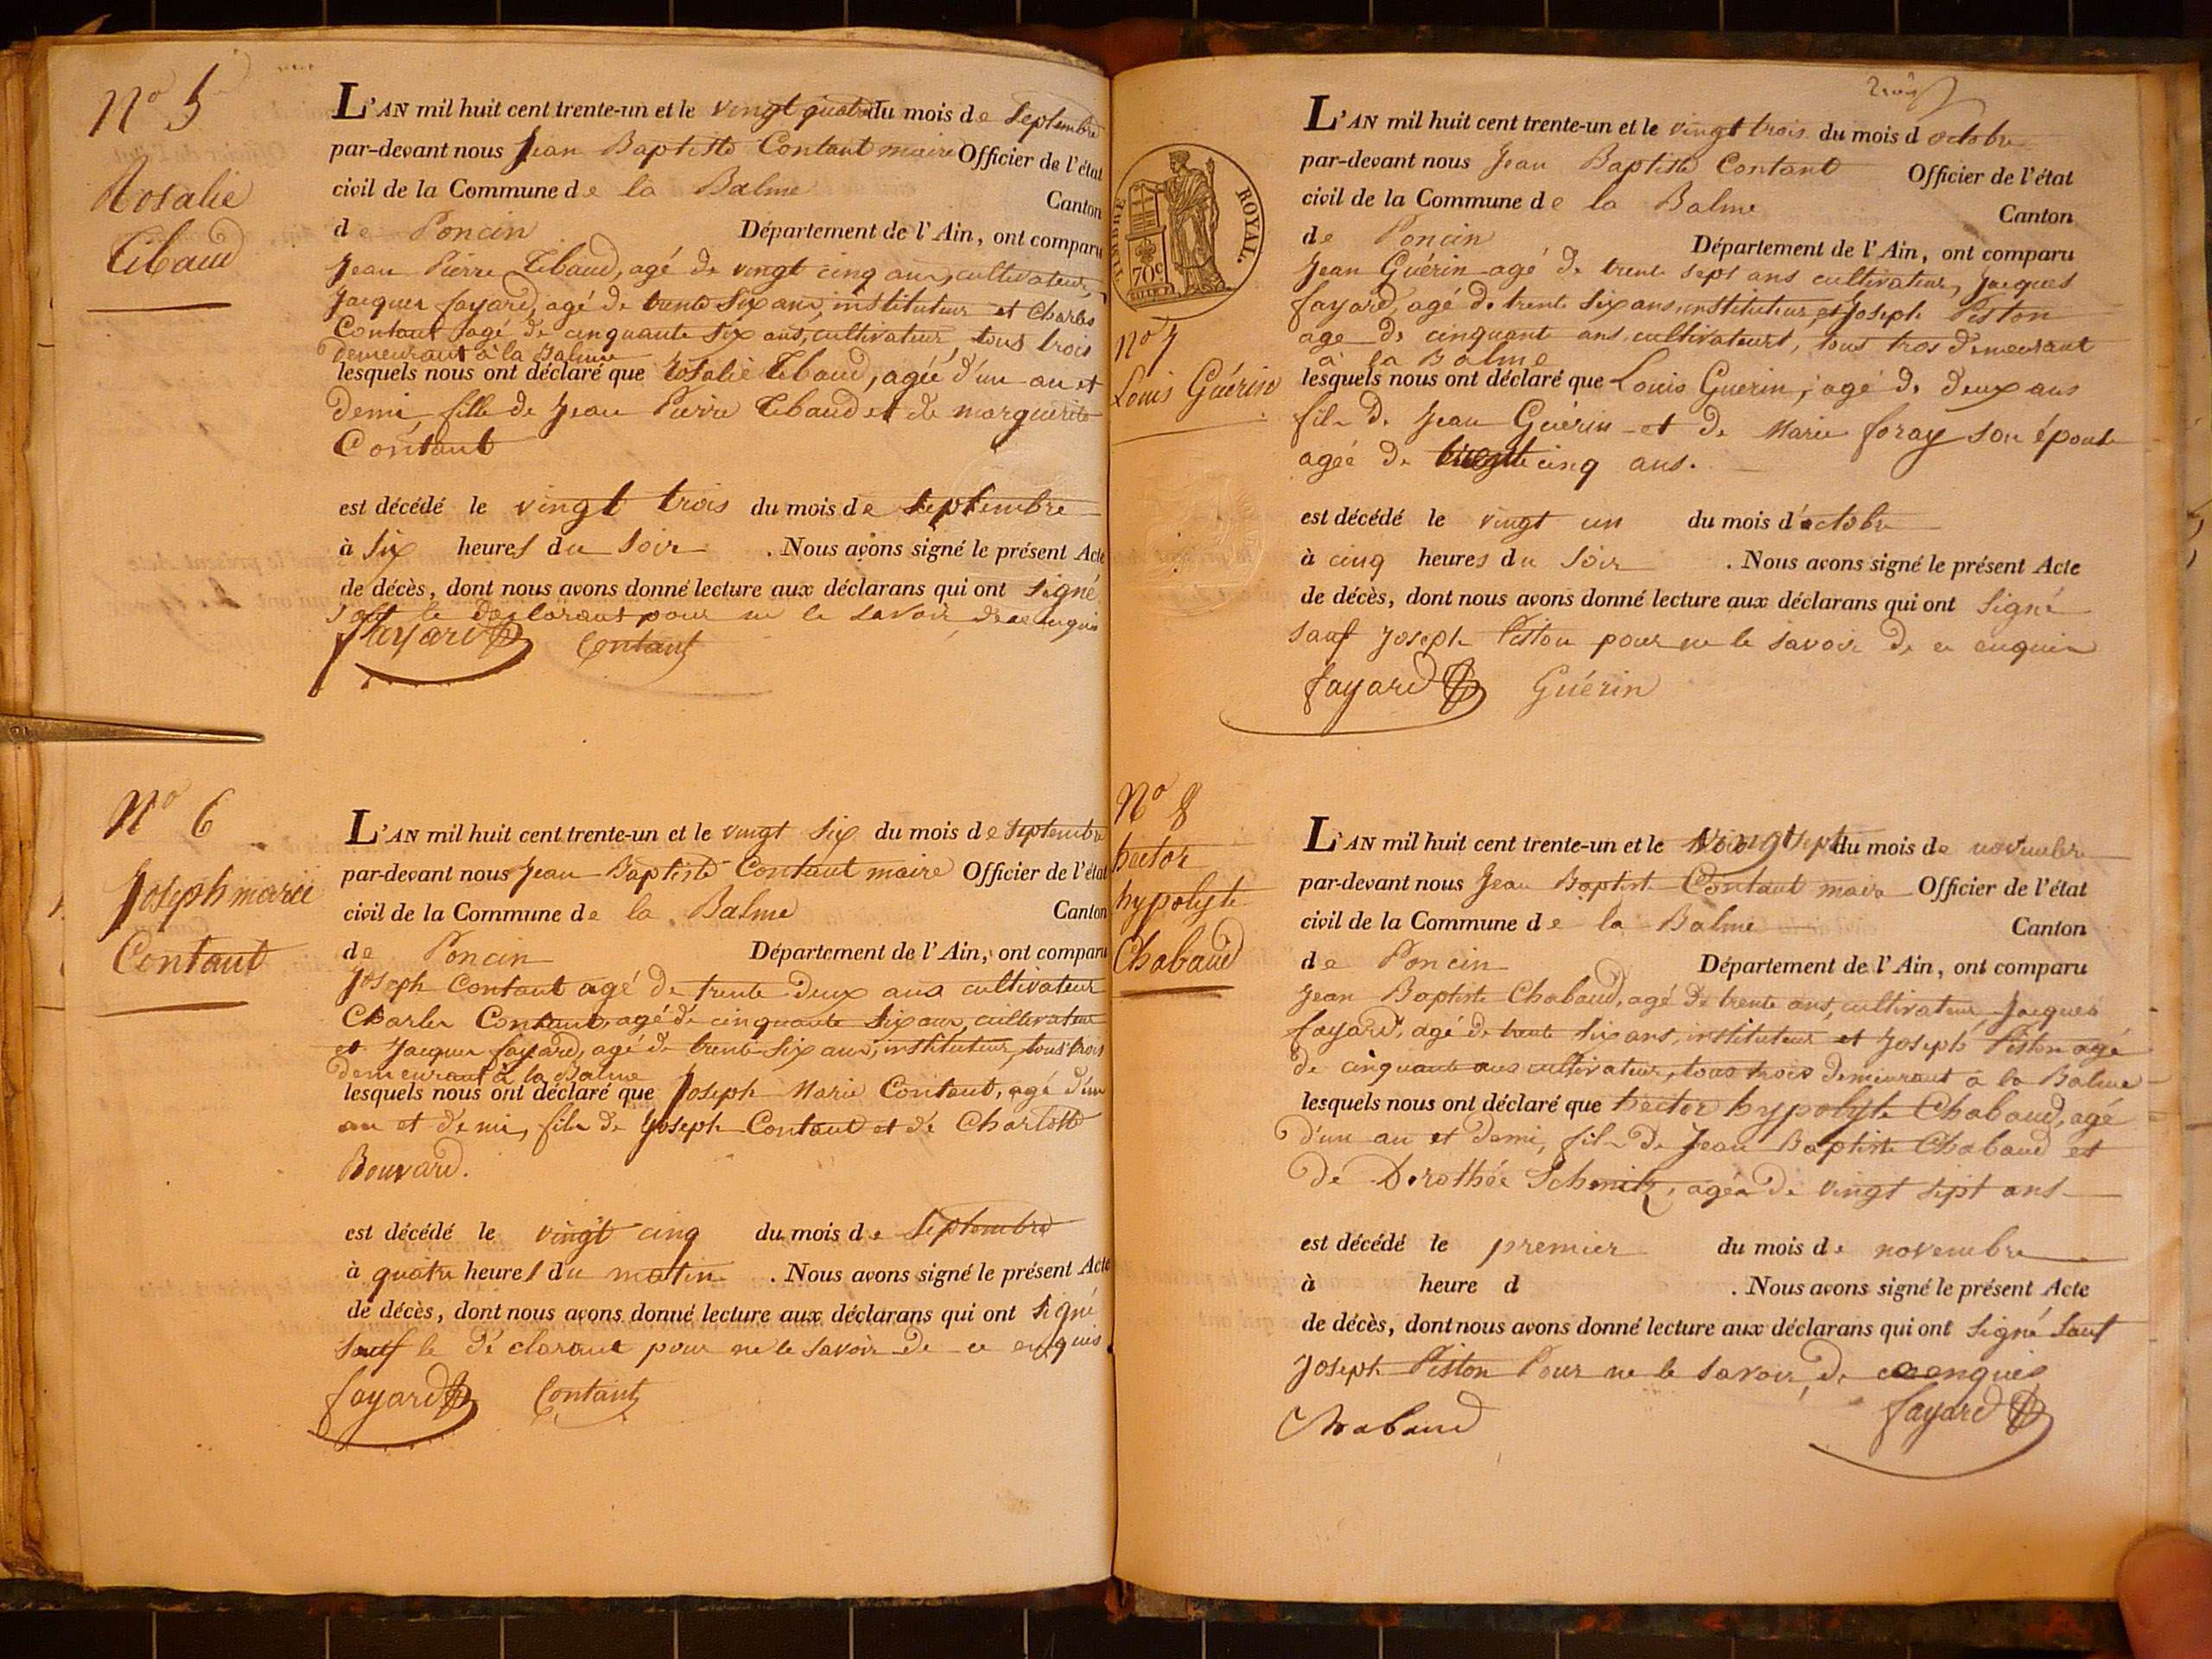 N° 5
Rosalie
Tibaud
L'AN mil huit cent trente-un et le vingt quatre du mois de Septembre
par-devant nous Jean Baptiste Contant maire Officier de l'état
civil de la Commune de la Balme Canton
de Poncin Département de l'Ain, ont comparu
Jean Pierre Tibaud, agé de vingt cinq ans, cultivateur,
Jacques fayard, agé de trente six ans, instituteur et Charles
Contant agé de cinquante six ans, cultivateur, tous trois
demeurant à la Balme
lesquels nous ont déclaré que Rosalie Tibaud, agée d'un an et
demi fille de Jean Pierre Tibaud et de marguerite
Contant
est décédé le vingt trois du mois de septembre
à six heures du soir . Nous avons signé le présent Acte
de décès, dont nous avons donné lecture aux déclarans qui ont signé
sauf le déclarant pour ne le savoir de ce enquis
fayard Contant
N° 6
Joseph marie
Contant
L'AN mil huit cent trente-un et le vingt six du mois de septembre
par-devant nous Jean Baptiste Contant maire Officier de l'état
civil de la Commune de la Balme Canton
de Poncin Département de l'Ain, ont comparu
Joseph Contant agé de trente deux ans cultivateur
Charles Contant, agé de cinquante six ans, cultivateur
et Jacques fayard, agé de trente six ans, instituteur, tous trois
demeurant à la Balme
lesquels nous ont déclaré que Joseph Marie Contant, agé d'un
an et demi, fils de Joseph Contant et de Charlotte
Bouvard.
est décédé le vingt cinq du mois de Septembre
à quatre heures du matin . Nous avons signé le présent Acte
de décès, dont nous avons donné lecture aux déclarans qui ont signé
sauf le déclarant pour ne le savoir de ce enquis
fayard Contant
TIMBRE ROYAL.
70c
N° 7
Louis Guérin
L'AN mil huit cent trente-un et le vingt trois du mois d octobre
par-devant nous Jean Baptiste Contant Officier de l'état
civil de la Commune de la Balme Canton
de Poncin Département de l'Ain, ont comparu
Jean Guérin agé de trente sept ans cultivateur, Jacques
fayard, agé de trente six ans, instituteur, et Joseph Piston
age de cinquant ans cultivateurt, tous tros demeurant
à la Balme
lesquels nous ont déclaré que Louis Guerin, agé de deux ans
fils de Jean Guérin et de Marie foray son épouse
agée de cinq ans.
est décédé le vingt un du mois d'octobre
à cinq heures du soir . Nous avons signé le présent Acte
de décès, dont nous avons donné lecture aux déclarans qui ont signé
sauf Joseph Piston pour ne le savoir de ce enquis
fayard Guérin
N° 8
hector
hypolyte
Chabaud
L'AN mil huit cent trente-un et le vingt sept du mois de novembre
par-devant nous Jean Baptiste Contant maire Officier de l'état
civil de la Commune de la Balme Canton
de Poncin Département de l'Ain, ont comparu
Jean Baptiste Chabaud, agé de trente ans, cultivateur Jacques
fayard, agé de trente six ans, instituteur et Joseph Piston agé
de cinquante ans cultivateur, tous trois demeurant à la Balme
lesquels nous ont déclaré que hector hypolyte Chabaud, agé
d'un an et demi, fils de Jean Baptiste Chabaud et
de Dorothée Schmitz, agée de vingt sept ans
est décédé le premier du mois de novembre
à heure d . Nous avons signé le présent Acte
de décès, dont nous avons donné lecture aux déclarans qui ont signé sauf
Joseph Piston Pour ne le savoir, de ce enquis
Chabaud fayard